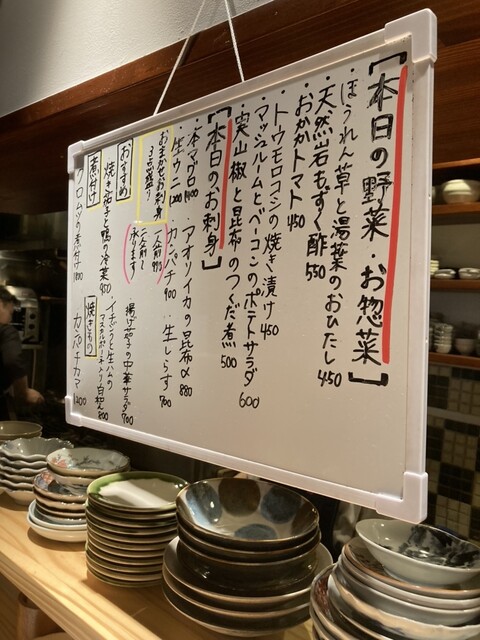 【本日の野菜・お惣菜】
・ほうれん草と湯葉のおひたし 450
・天然岩もずく酢 550
・おかかトマト 450
・トウモロコシの焼き漬け 450
・マッシュルームとベーコンのポテトサラダ 600
・実山椒と昆布のつくだ煮 500
【本日のお刺身】
・本マグロ 1400 ・アオリイカの昆布〆 880
・生ウニ 1200 ・カンパチ 900 ・生しらす 700
おまかせお刺身3点盛り
(一人前990 二人前〜承ります)
おすすめ
・焼き茄子と鴨の冷菜 950
・揚げ茄子の中華サラダ 700
・イチジクと生ハムのマスカルポーネトリュフ白和え 800
煮付け
クロムツの煮付け 1800
焼きもの
カンパチカマ 1200